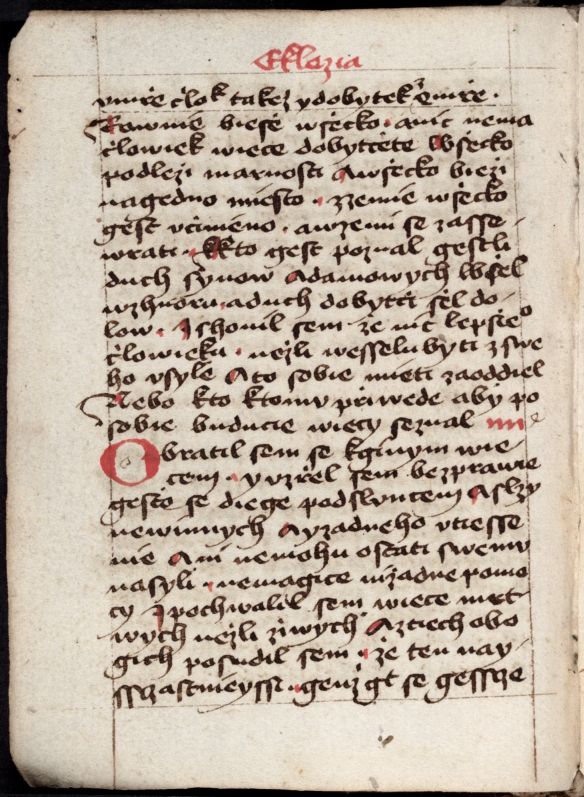 Eklezia
vmře člok takež ydobytek Emře ·
Rownie bieše wsěcko · anic nema
člowiek wiece dobyttete Wsěcko
podleži marnosti Awsěcko bieži
nagedno miesto · zzemie wsěcko
gest včinieno · awzemi se zasse
wrati · Kto gest poznal gestli
duch synow Adamowych Wšel
wzhuoru · aduch dobytči šel do
low · Ishonil sem že nič lepsieo
člowieku · nežli wesselu byti zswe
ho vsyle Ato sobie mieti zaoddiel
Nebo kto ktomu přiwede aby po
sobie buducie wiecy seznal iiii
Obratil sem se kginym wie
cem · yvzřel sem bezprawie
gesto se diege podsluncem Aslzy
newinnych Ayzadneho vtiesse
nie Ani nemohu ostati swemu
nasyli · nemagice nizadne pomo
cy Ipochwalil sem wiece mrt
wych nežli žiwych Aztiech obo
gich posudil sem · že ten nay
sszastnieyssi · genž gt se gesscze